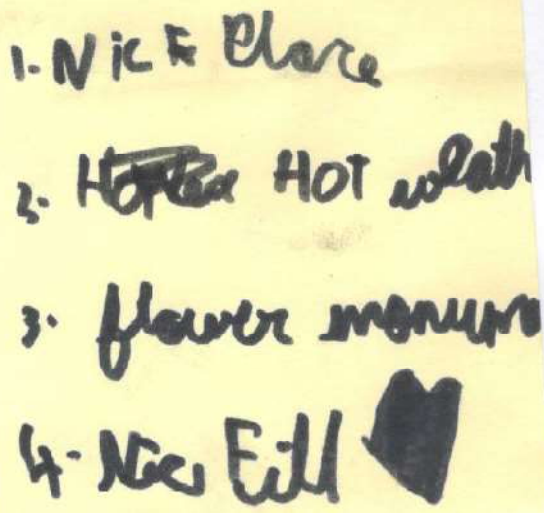 1. Nice Place
2. HOT weath
3. flower monum
4. Nice